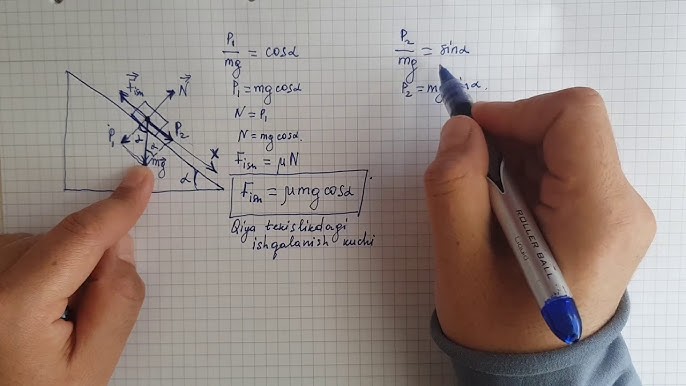 F⃗ishq
N⃗
P₁
α
α
P₂
mg⃗
x
α
P₁/mg = cosα
P₁ = mgcosα
N = P₁
N = mgcosα.
Fishq = μN
Fishq = μmgcosα.
Qiya tekislikdagi
ishqalanish kuchi
P₂/mg = sinα
P₂ = mg sinα.
ROLLER BALL